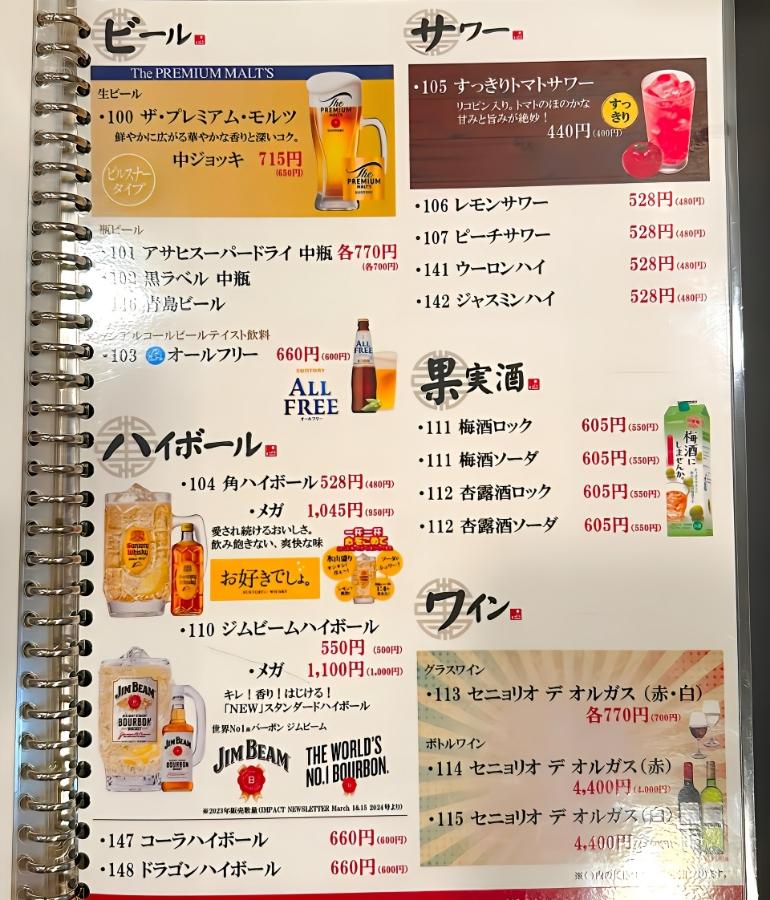 ビール
The PREMIUM MALT'S
生ビール
・100 ザ・プレミアム・モルツ
鮮やかに広がる華やかな香りと深いコク。
中ジョッキ 715円
(650円)
ピルスナー
タイプ
The
PREMIUM
MALT'S
The
PREMIUM
MALT'S
瓶ビール
・101 アサヒスーパードライ 中瓶 各770円
(各700円)
・102 黒ラベル 中瓶
・146 青島ビール
ノンアルコールビールテイスト飲料
・103 オールフリー 660円(600円)
SUNTORY
ALL
FREE
オールフリー
ALL
FREE
ハイボール
・104 角ハイボール 528円(480円)
・メガ 1,045円(950円)
愛され続けるおいしさ。
飲み飽きない、爽快な味
お好きでしょ。
SUNTORY WHISKY
Suntory
Whisky
一杯一杯
心をこめて
氷山盛り
・110 ジムビームハイボール
550円 (500円)
・メガ 1,100円(1,000円)
キレ！香り！はじける！
「NEW」スタンダードハイボール
世界No1※バーボン ジムビーム
JIM BEAM
BOURBON
JIM BEAM
BOURBON
JIM BEAM
THE WORLD'S
NO.1 BOURBON.
※2023年販売数量(IMPACT NEWSLETTER March 1&15 2024号より)
・147 コーラハイボール 660円(600円)
・148 ドラゴンハイボール 660円(600円)
サワー
・105 すっきりトマトサワー
リコピン入り。トマトのほのかな
甘みと旨みが絶妙！
440円(400円)
すっ
きり
・106 レモンサワー 528円(480円)
・107 ピーチサワー 528円(480円)
・141 ウーロンハイ 528円(480円)
・142 ジャスミンハイ 528円(480円)
果実酒
・111 梅酒ロック 605円(550円)
・111 梅酒ソーダ 605円(550円)
・112 杏露酒ロック 605円(550円)
・112 杏露酒ソーダ 605円(550円)
梅酒に
しませんか。
ワイン
グラスワイン
・113 セニョリオ デ オルガス（赤・白）
各770円(700円)
ボトルワイン
・114 セニョリオ デ オルガス（赤）
4,400円(4,000円)
・115 セニョリオ デ オルガス（白）
4,400円